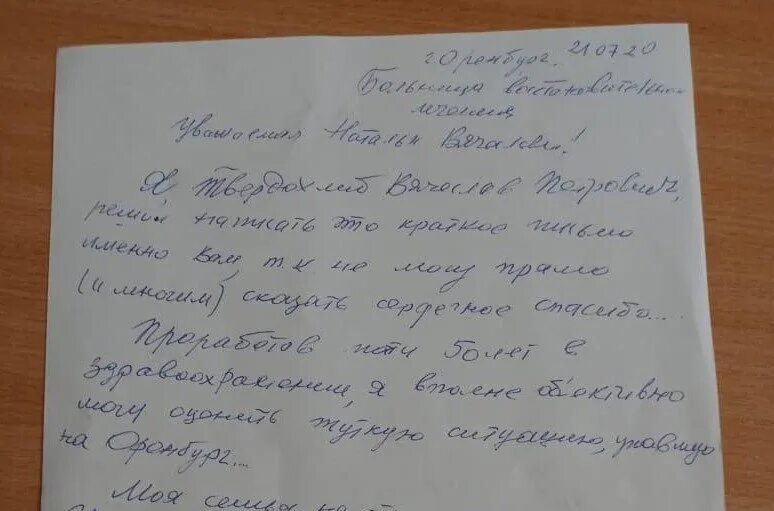 г Оренбург. 21.07.20
Больница восстановительного
лечения
Уважаемая Наталья Вячаслав!
Я Твердохлеб Вячеслав Петрович,
решил написать это краткое письмо
именно Вам, т.к не могу прямо
(и многим) сказать сердечное спасибо...
Проработав почти 50 лет в
здравоохранении, я вполне объективно
могу оценить жуткую ситуацию, упавшую
на Оренбург...
Моя семья